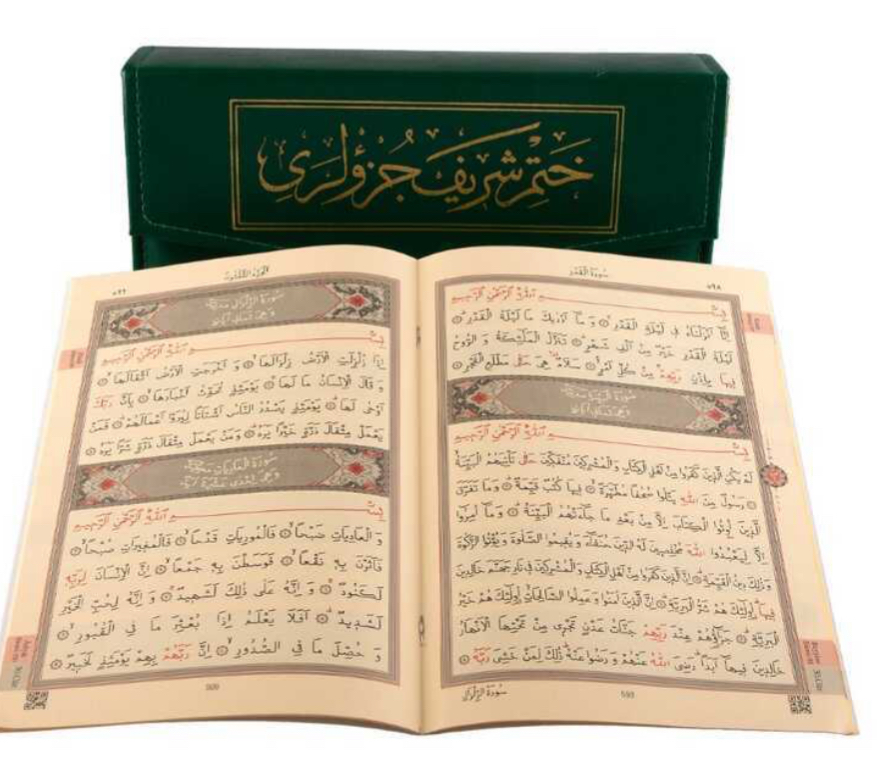 خَتْمِ شَرِيفْ جُزْؤُلَرِى
سُورَةُ الْقَدْرِ
٥٩٨
بِسْمِ اللّٰهِ الرَّحْمٰنِ الرَّحِيمِ
اِنَّٓا اَنْزَلْنَاهُ فِى لَيْلَةِ الْقَدْرِ وَمَٓا اَدْرٰيكَ مَا لَيْلَةُ الْقَدْرِ
لَيْلَةُ الْقَدْرِ خَيْرٌ مِنْ اَلْفِ شَهْرٍ تَنَزَّلُ الْمَلٰٓئِكَةُ وَالرُّوحُ
فِيهَا بِاِذْنِ رَبِّهِمْ مِنْ كُلِّ اَمْرٍ سَلَامٌ هِىَ حَتّٰى مَطْلَعِ الْفَجْرِ
سُورَةُ الْبَيِّنَةِ مَدَنِيَّةٌ
وَهِىَ ثَمَانِى اٰيَاتٍ
بِسْمِ اللّٰهِ الرَّحْمٰنِ الرَّحِيمِ
لَمْ يَكُنِ الَّذِينَ كَفَرُوا مِنْ اَهْلِ الْكِتَابِ وَالْمُشْرِكِينَ مُنْفَكِّينَ حَتّٰى تَأْتِيَهُمُ الْبَيِّنَةُ
رَسُولٌ مِنَ اللّٰهِ يَتْلُوا صُحُفًا مُطَهَّرَةً فِيهَا كُتُبٌ قَيِّمَةٌ وَمَا تَفَرَّقَ
الَّذِينَ اُوتُوا الْكِتَابَ اِلَّا مِنْ بَعْدِ مَا جَٓاءَتْهُمُ الْبَيِّنَةُ وَمَٓا اُمِرُٓوا
اِلَّا لِيَعْبُدُوا اللّٰهَ مُخْلِصِينَ لَهُ الدِّينَ حُنَفَٓاءَ وَيُقِيمُوا الصَّلٰوةَ وَيُؤْتُوا الزَّكٰوةَ
وَذٰلِكَ دِينُ الْقَيِّمَةِ اِنَّ الَّذِينَ كَفَرُوا مِنْ اَهْلِ الْكِتَابِ وَالْمُشْرِكِينَ فِى نَارِ جَهَنَّمَ خَالِدِينَ
فِيهَا اُولٰٓئِكَ هُمْ شَرُّ الْبَرِيَّةِ اِنَّ الَّذِينَ اٰمَنُوا وَعَمِلُوا الصَّالِحَاتِ اُولٰٓئِكَ هُمْ خَيْرُ
الْبَرِيَّةِ جَزَٓاؤُهُمْ عِنْدَ رَبِّهِمْ جَنَّاتُ عَدْنٍ تَجْرِى مِنْ تَحْتِهَا الْاَنْهَارُ
خَالِدِينَ فِيهَٓا اَبَدًا رَضِىَ اللّٰهُ عَنْهُمْ وَرَضُوا عَنْهُ ذٰلِكَ لِمَنْ خَشِىَ رَبَّهُ
سُورَةُ الزِّلْزَالِ
٥٩٩
سُورَةُ الزِّلْزَالِ مَدَنِيَّةٌ
وَهِىَ ثَمَانِى اٰيَاتٍ
بِسْمِ اللّٰهِ الرَّحْمٰنِ الرَّحِيمِ
اِذَا زُلْزِلَتِ الْاَرْضُ زِلْزَالَهَا وَاَخْرَجَتِ الْاَرْضُ اَثْقَالَهَا
وَقَالَ الْاِنْسَانُ مَا لَهَا يَوْمَئِذٍ تُحَدِّثُ اَخْبَارَهَا بِاَنَّ رَبَّكَ
اَوْحٰى لَهَا يَوْمَئِذٍ يَصْدُرُ النَّاسُ اَشْتَاتًا لِيُرَوْا اَعْمَالَهُمْ فَمَنْ
يَعْمَلْ مِثْقَالَ ذَرَّةٍ خَيْرًا يَرَهُ وَمَنْ يَعْمَلْ مِثْقَالَ ذَرَّةٍ شَرًّا يَرَهُ
سُورَةُ الْعَادِيَاتِ مَكِّيَّةٌ
وَهِىَ اِحْدٰى عَشْرَةَ اٰيَةً
بِسْمِ اللّٰهِ الرَّحْمٰنِ الرَّحِيمِ
وَالْعَادِيَاتِ ضَبْحًا فَالْمُورِيَاتِ قَدْحًا فَالْمُغِيرَاتِ صُبْحًا
فَاَثَرْنَ بِهِ نَقْعًا فَوَسَطْنَ بِهِ جَمْعًا اِنَّ الْاِنْسَانَ لِرَبِّهِ
لَكَنُودٌ وَاِنَّهُ عَلٰى ذٰلِكَ لَشَهِيدٌ وَاِنَّهُ لِحُبِّ الْخَيْرِ
لَشَدِيدٌ اَفَلَا يَعْلَمُ اِذَا بُعْثِرَ مَا فِى الْقُبُورِ
وَحُصِّلَ مَا فِى الصُّدُورِ اِنَّ رَبَّهُمْ بِهِمْ يَوْمَئِذٍ لَخَبِيرٌ